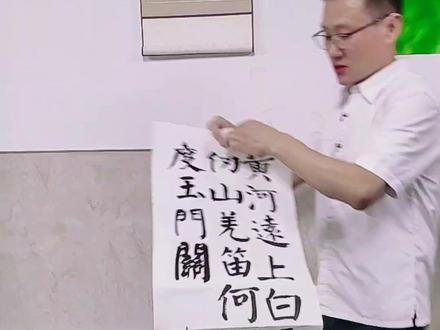 黃河遠上白
仞山羌笛何
度玉門關